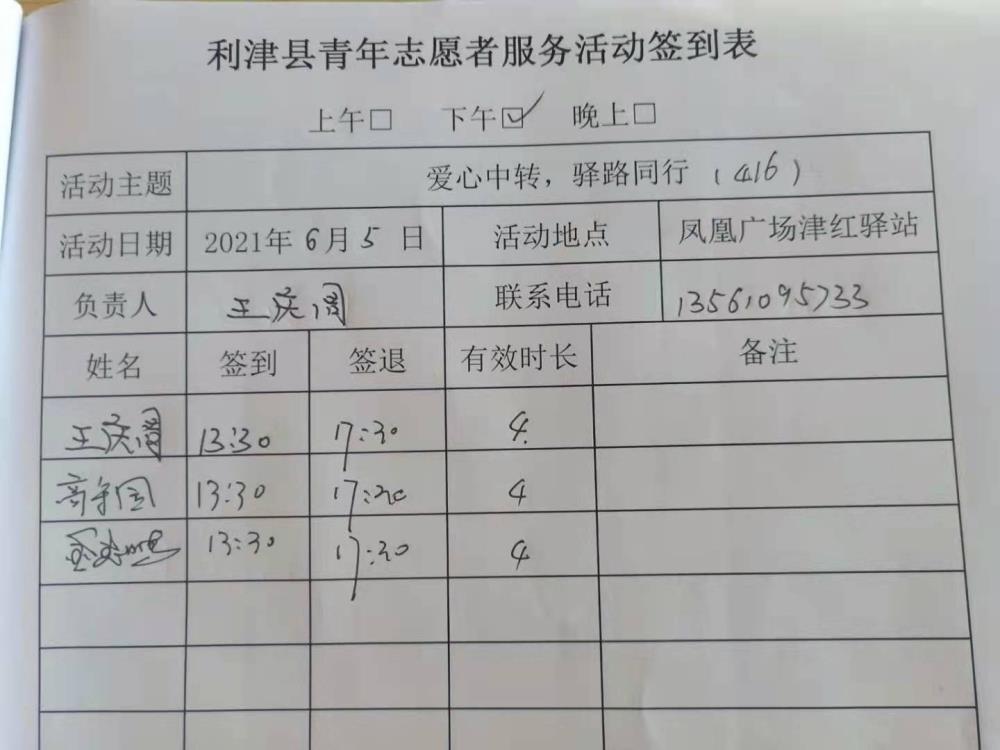 利津县青年志愿者服务活动签到表
上午□ 下午☑ 晚上□
活动主题 爱心中转，驿路同行（416）
活动日期 2021年6月5日 活动地点 凤凰广场津红驿站
负责人 王庆阁 联系电话 13561095733
姓名 签到 签退 有效时长 备注
王庆阁 13:30 17:30 4
高守国 13:30 17:30 4
13:30 17:30 4